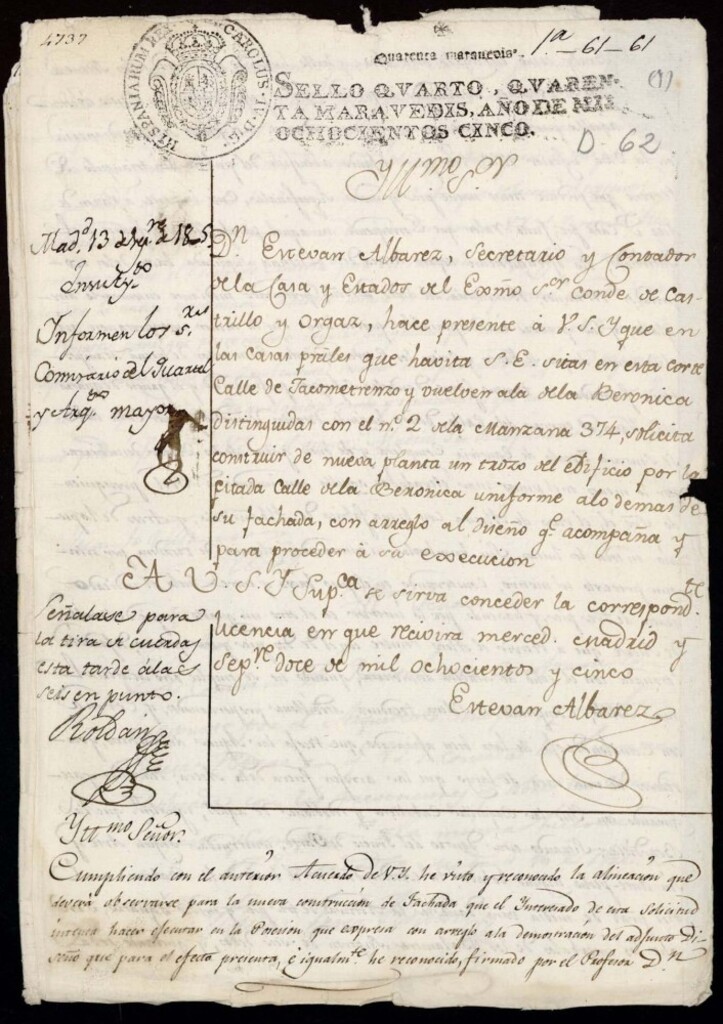 4737
HISPANIARUM REX CAROLUS IV D.G.
Quarenta maravedis.
1ª-61-61
(1)
SELLO QVARTO, QVAREN-
TA MARAVEDIS, AÑO DE MIL
OCHOCIENTOS CINCO.
D. 62
Yllmo. Sor
Dn Estevan Albarez, Secretario y Contador
de la Casa y Estados del Exmo Sor Conde de Cas-
trillo y Orgaz, hace presente à V.S.Y que en
las Casas prâles que havita S.E. sitas en esta corte
Calle de Jacometrenzo y vuelven ala dela Beronica
distinguidas con el nº 2 dela Manzana 374, solicita
construir de nueva planta un trozo del edificio por la
citada Calle dela Beronica uniforme alo demas de
su fachada, con arreglo al diseño qe acompaña y
para proceder à su execucion
A V.S.Y Supca se sirva conceder la correspondte
licencia en que recivira merced. Madrid y
Sepre doce de mil ochocientos y cinco
Estevan Albarez
Madd 13 de 1805
Informen los Sres
Comisario del Quartel
y Arqto mayor
Señalase para
la tira de cuerdas
esta tarde àlas
seis en punto.
Roldan
Yttmo Señor.
Cumpliendo con el anterior Acuerdo de V.Y. he visto y reconocido la alineacion que
deverá observarse para la nueva construccion de Fachada que el Interesado de esta Solicitud
intenta hacer ejecutar en la Posesion que expresa con arreglo ala demostracion del adjunto Di-
seño que para el efecto presenta, è igualmte he reconocido, firmado por el Profesor Dn